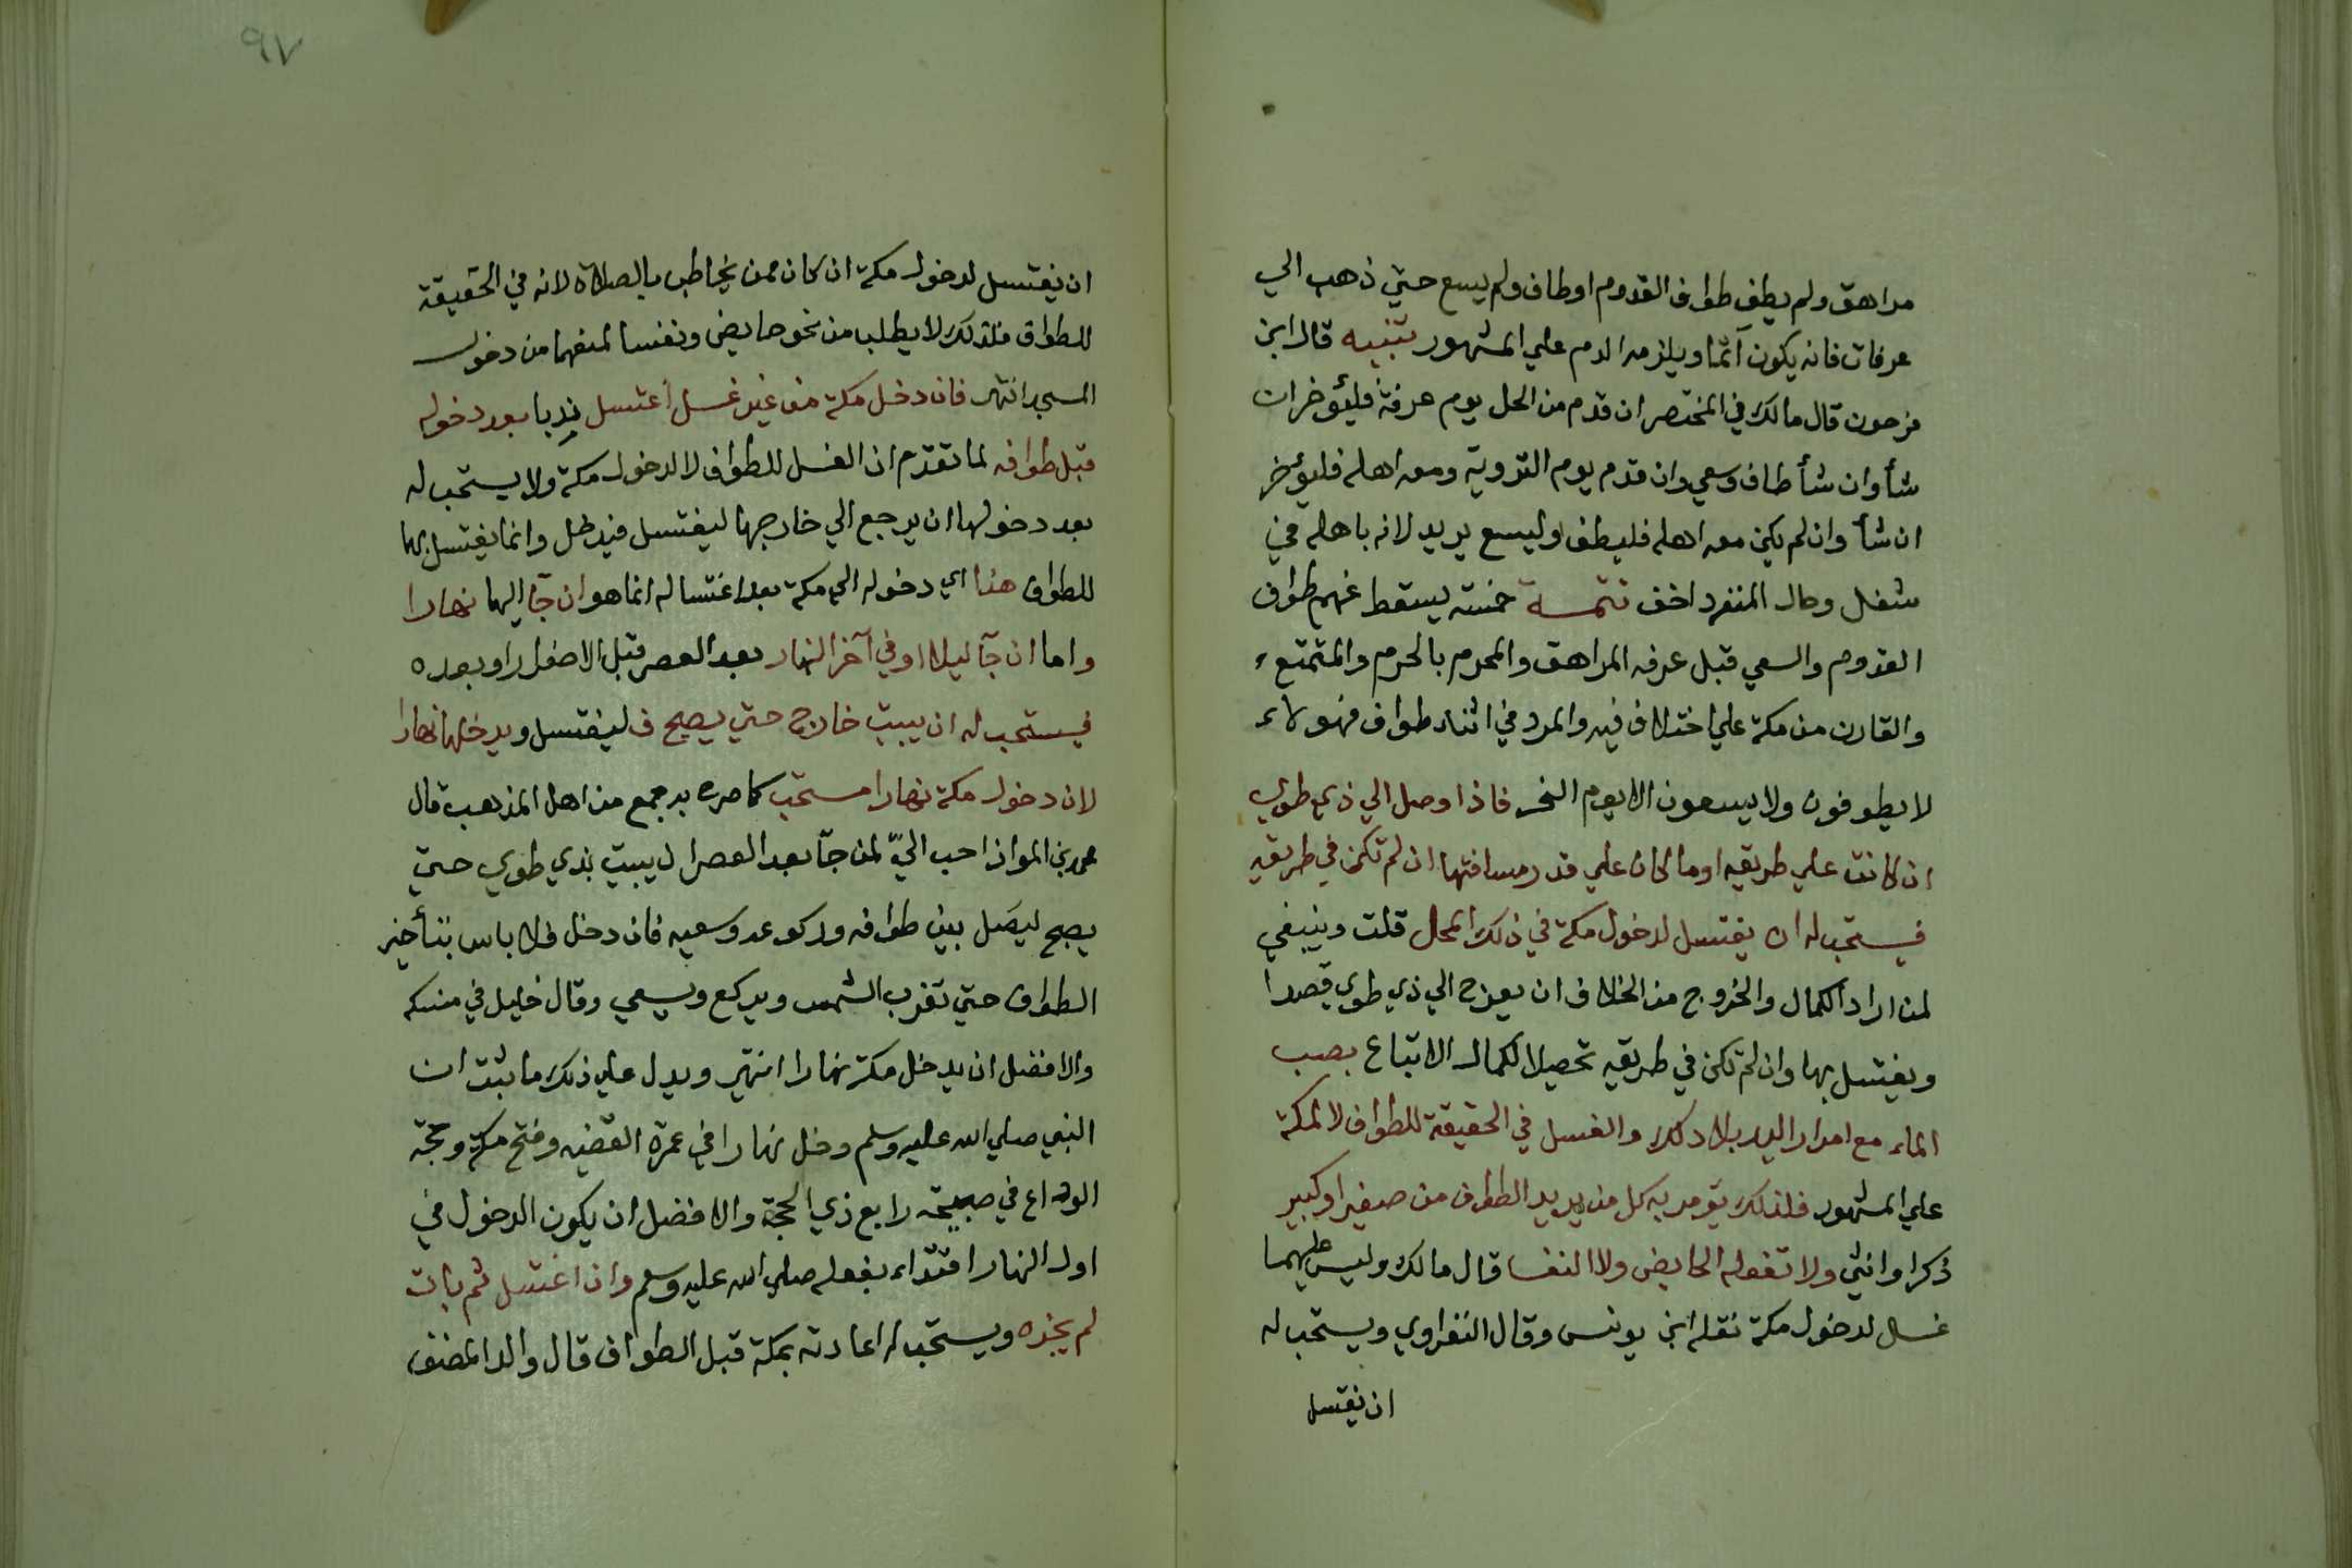 مراهق ولم يطف طواف القدوم او طاف ولم يسع حتي ذهب الي
عرفات فانه يكون آثما ويلزمه الدم علي المشهور تنبيه قال ابن
فرحون قال مالك في المختصر ان قدم من الحل يوم عرفة فليؤخر ان
شأ وان شأ طاف وسعي وان قدم يوم التروية ومعه اهله فليؤخر
ان شأ وان لم يكن معه اهله فليطف وليسع يريد لانه باهله في
شغل وحال المنفرد اخف تتمــة خمسة يسقط عنهم طواف
القدوم والسعي قبل عرفه المراهق والمحرم بالحرم والمتمتع
والقارن من مكة علي اختلاف فيه والمردف في اثناء طواف فهولاء
لا يطوفون ولا يسعون الا يوم النحر فاذا وصل الي ذي طوي
ان كانت علي طريقه او ما كان علي قدر مسافتها ان لم تكن في طريقه
فيستحب له ان يغتسل لدخول مكة في ذلك المحل قلت وينبغي
لمن اراد الكمال والخروج من الخلاف ان يعرج الي ذي طوي قصدا
ويغتسل بها وان لم تكن في طريقه تحصيلا لكمال الاتباع بصب
الماء مع امرار اليد بلا دلك والغسل في الحقيقة للطواف لا لمكة
علي المشهور فلذلك يؤمر به كل من يريد الطواف من صغير او كبير
ذكر او انثي ولا تفعله الحايض ولا النفسا قال مالك وليس عليهما
غسل لدخول مكة نقله ابن يونس وقال النفراوي ويستحب له
ان يغتسل
٩٧
ان يغتسل لدخول مكة ان كان ممن يخاطب بالصلاة لانه في الحقيقة
للطواف فلذلك لا يطلب من نحو حايض ونفسا لمنعهما من دخول
المسجد انتهي فان دخل مكة من غير غسل أغتسل ندبا بعد دخوله
قبل طوافه لما تقدم ان الغسل للطواف لا لدخول مكة ولا يستحب له
بعد دخولها ان يرجع الي خارجها ليغتسل فيدخل وانما يغتسل بها
للطواف هذا اي دخوله الي مكة بعد اغتساله انما هو ان جآ اليها نهارا
واما ان جآ ليلا او في آخر النهار بعد العصر قبل الاصفرار او بعده
فيستحب له ان يبيت خارج حتي يصبح ف ليغتسل ويدخلها نهارا
لان دخول مكة نهارا مستحب كما صرح به جمع من اهل المذهب قال
محمد بن المواز احب اليّ لمن جآ بعد العصر ان يبيت بذي طوي حتي
يصبح ليصل بين طوافه وركوعه وسعيه فان دخل فلا باس بتأخير
الطواف حتي تغرب الشمس ويركع ويسعي وقال خليل في منسكه
والافضل ان يدخل مكة نهارا انتهي ويدل علي ذلك ما ثبت ان
النبي صلي الله عليه وسلم دخل نهارا في عمرة القضيه وفتح مكة وحجة
الوداع في صبيحة رابع ذي الحجة والافضل ان يكون الدخول في
اول النهار اقتداء بفعله صلي الله عليه وسلم وان اغتسل ثم بات
لم يجزه ويستحب له اعادته بمكة قبل الطواف قال والد المصنف